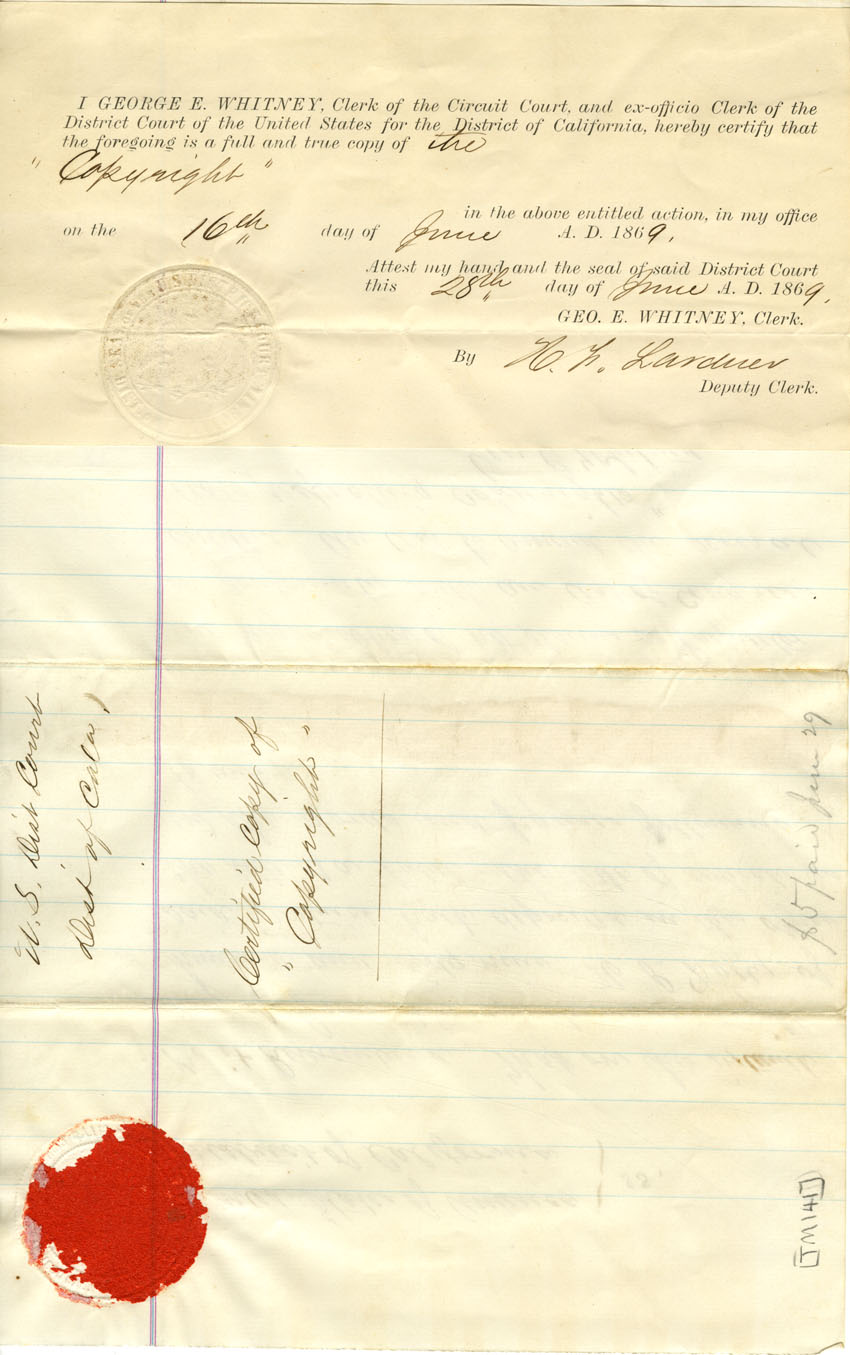 I GEORGE E. WHITNEY, Clerk of the Circuit Court, and ex-officio Clerk of the
District Court of the United States for the District of California, hereby certify that
the foregoing is a full and true copy of the
"Copyright"
in the above entitled action, in my office
on the 16th day of June A. D. 1869,
Attest my hand and the seal of said District Court
this 28th day of June A. D. 1869,
GEO. E. WHITNEY, Clerk.
By
Deputy Clerk.
U. S. Dist Court
Dist of Cala,
Certified Copy of
"Copyright"
$5 paid June 29
JM141